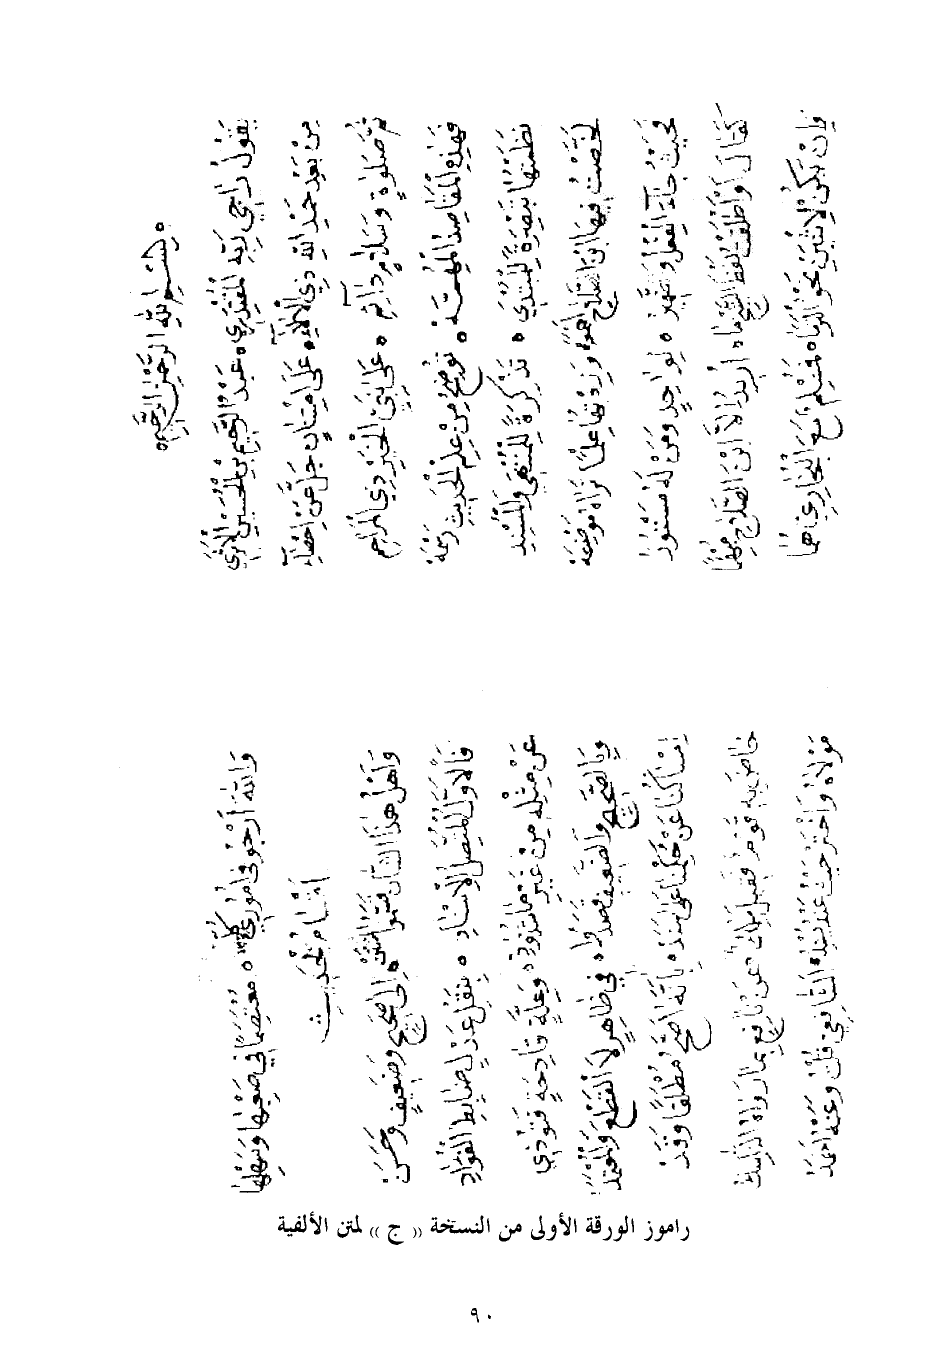 بسم الله الرحمن الرحيم
يَقُولُ رَاجِي رَبِّهِ الْمُقْتَدِرِ ه عَبْدُ الرَّحِيمِ بنُ الْحُسَيْنِ الْأَثَرِي
مِنْ بَعْدِ حَمْدِ اللهِ ذِي الْآلَاءِ ه عَلَى امْتِنَانٍ جَلَّ عَنْ إِحْصَاءِ
ثُمَّ صَلَاةٍ وَسَلَامٍ دَائِمِ ه عَلَى نَبِيِّ الْخَيْرِ ذِي الْمَرَاحِمِ
فَهَذِهِ الْمَقَاصِدُ الْمُهِمَّهْ ه تُوضِحُ مِنْ عِلْمِ الْحَدِيثِ رَسْمَهْ
نَظَمْتُهَا تَبْصِرَةً لِلْمُبْتَدِي ه تَذْكِرَةً لِلْمُنْتَهِي وَالْمُسْنِدِ
لَخَّصْتُ فِيهَا ابْنَ الصَّلَاحِ أَجْمَعَهْ ه وَزِدْتُهَا عِلْمًا تَرَاهُ مَوْضِعَهْ
فَحَيْثُ جَاءَ الْفِعْلُ وَالضَّمِيرُ ه لِوَاحِدٍ وَمَنْ لَهُ مَسْتُورُ
كَقَالَ أَوْ أَطْلَقْتُ لَفْظَ الشَّيْخِ مَا ه أُرِيدُ إِلَّا ابْنَ الصَّلَاحِ مُبْهَمَا
وَإِنْ يَكُنْ لِاثْنَيْنِ نَحْوُ الْتَزَمَا ه فَمُسْلِمٌ مَعَ الْبُخَارِيِّ هُمَا
وَاللهَ أَرْجُو فِي أُمُورِي كُلِّهَا ه مُعْتَصَمًا فِي صَعْبِهَا وَسَهْلِهَا
أَقْسَامُ الْحَدِيثِ
وَأَهْلُ هَذَا الشَّأْنِ قَسَّمُوا السُّنَنْ ه إِلَى صَحِيحٍ وَضَعِيفٍ وَحَسَنْ
فَالْأَوَّلُ الْمُتَّصِلُ الْإِسْنَادِ ه بِنَقْلِ عَدْلٍ ضَابِطِ الْفُؤَادِ
عَنْ مِثْلِهِ مِنْ غَيْرِ مَا شُذُوذِ ه وَعِلَّةٍ قَادِحَةٍ فَتُوذِي
وَبِالصَّحِيحِ وَالضَّعِيفِ قَصَدُوا ه فِي ظَاهِرٍ لَا الْقَطْعَ وَالْمُعْتَمَدُ
إِمْسَاكُنَا عَنْ حُكْمِنَا عَلَى سَنَدْ ه بِأَنَّهُ أَصَحُّ مُطْلَقًا وَقَدْ
خَاضَ بِهِ قَوْمٌ فَقِيلَ مَالِكُ عَنْ نَافِعٍ بِمَا رَوَاهُ النَّاسِكُ
مَوْلَاهُ وَاخْتَرْ حَيْثُ عَنْهُ يُسْنِدُ ه الشَّافِعِيُّ قُلْتُ وَعَنْهُ أَحْمَدُ
راموز الورقة الأولى من النسخة (( ج )) لمتن الألفية
٩٠